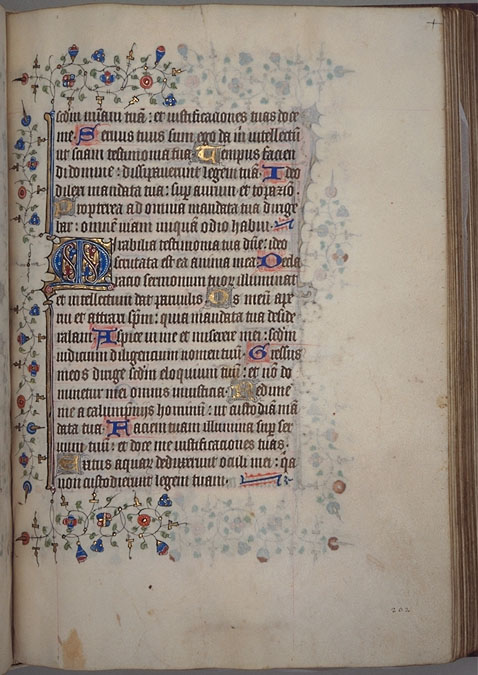 scd'm miam tuā: et iustificationes tuas doce
me. Seruus tuus sum ego da in intellectū
ut sciam testimonia tua. Tempus facien
di domine: dissipauerunt legem tuā. Ideo
dilexi mandata tua: sup aurum et topazio.
Propterea ad omnia mandata tua dirige
bar: omnē uiam iniquā odio habui.
Mirabilia testimonia tua dn̄e: ideo
scrutata est ea anima mea. Decla
ratio sermonum tuor illuminat
et intellectum dat paruulis. Os meū ape
rui et attraxi spm̄: quia mandata tua deside
rabam. Aspice in me et miserere mei: scd'm
iudicium diligencium nomen tuū. Gressus
meos dirige scd'm eloquium tuū: et nō do
minetur mei omnis iniusticia. Redime
me a calumpnijs hominū: ut custodiā mā
data tua. Faciem tuam illumina sup ser
uum tuū: et doce me iustificationes tuas.
Exitus aquar deduxerunt oculi mei: q̄a
non custodierunt legem tuam.
202